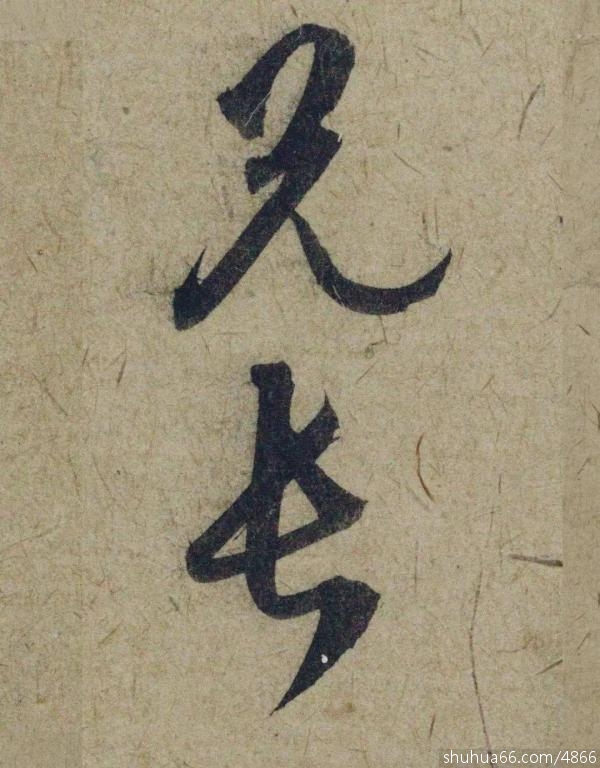 兄長
shuhua66.com/4866